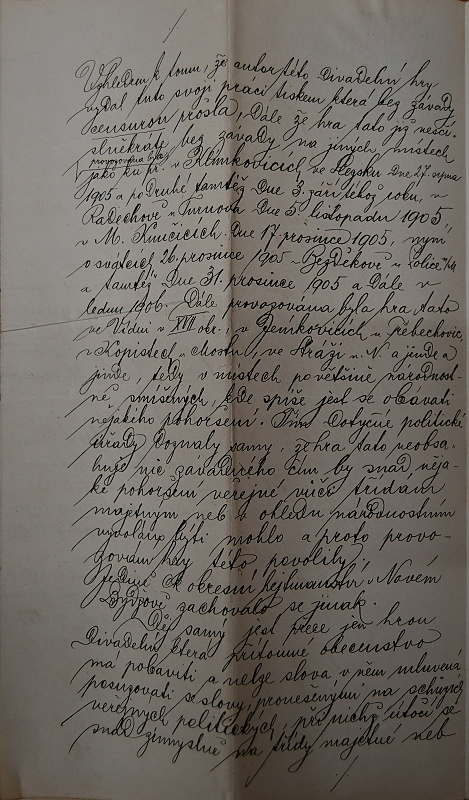 Vzhledem k tomu, že autor této divadelní hry
vydal tuto svoji práci tiskem která bez závady
censurou prošla, Dále že hra tato již nesči-
slněkráte bez závady na jiných místech
provozována byla
jako ku př. v Klimkovicích ve Slezsku Dne 27. srpna
1905 a po Druhé tamtéž Dne 3. září téhož roku, v
Radechově u Turnova Dne 5. listopadu 1905,
v M. Knučicích. Dne 17 prosince 1905, nyní
o svátcích 26. prosince 1905 Bezděkově u
a tamtéž Dne 31. prosince 1905 a Dále v
lednu 1906. Dále provozována byla hra tato
ve Vídni v XVII okr. v Jenikovicích u
v Kopistech u Mostu, ve Stráži n. N. a jinde a
jinde, tedy v místech po většině národnost-
ně smíšených, kde spíše jest se obávati
nějakého pohoršení. Tím Dotyčné politické
úřady Doznaly samy, že hra tato neobsa-
huje nic závadného čím by snad něja-
ké pohoršení veřejné vůči třídám
majetným neb v ohledu národnostním
vyvoláno býti mohlo a proto provo-
zování hry této povolily.
Jediné c. k okresní hejtmanství v Novém
Bydžově zachovalo se jinak.
Děj samý jest přece jen hrou
Divadelní která přítomné obecenstvo
má pobaviti a nelze slova v něm mluvená
posuzovati se slovy, pronešenými na schůzích
veřejných politických, při nichž útočí se
snad zúmyslně na třídy majetné neb